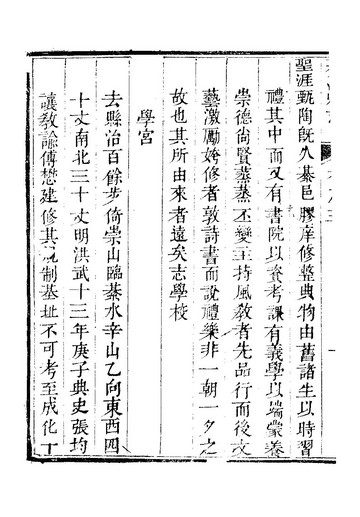 聖涯甄陶既久綦邑膠庠修整典物由舊諸生以時習
禮其中而又有書院以資考課有義學以端蒙養
崇德尚賢蒸蒸丕變主持風敎者先品行而後文
藝激勵姱修者敦詩書而說禮樂非一朝一夕之
故也其所由來者遠矣志學校
學宮
去縣治百餘步倚崇山臨綦水辛山乙向東西四
十丈南北三十丈明洪武十三年庚子典史張均
讓敎諭傅懋建修其規制基址不可考至成化丁